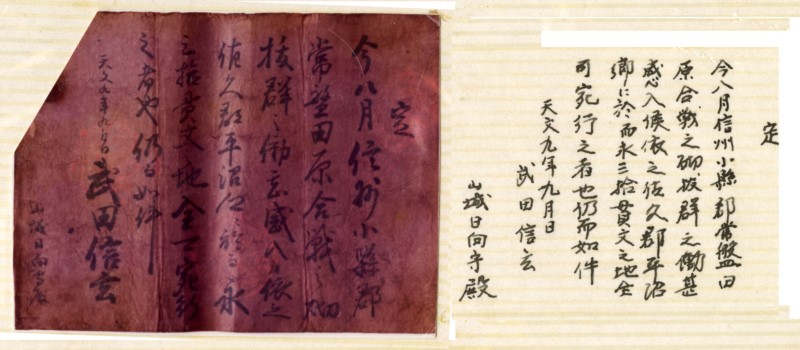 定
今八月信州小縣郡
常盤田原合戦之砌
抜群之働甚感入候依之
佐久郡平沼郷於而永
三拾貫文地全可宛行
之者也仍而如件
天文九年九月日
武田信玄
山城日向守殿
定
今八月信州小縣郡常盤田
原合戦之砌抜群之働甚
感入候依之佐久郡平沼
郷に於而永三拾貫文之地全
可宛行之者也仍而如件
天文九年九月日
武田信玄
山城日向守殿